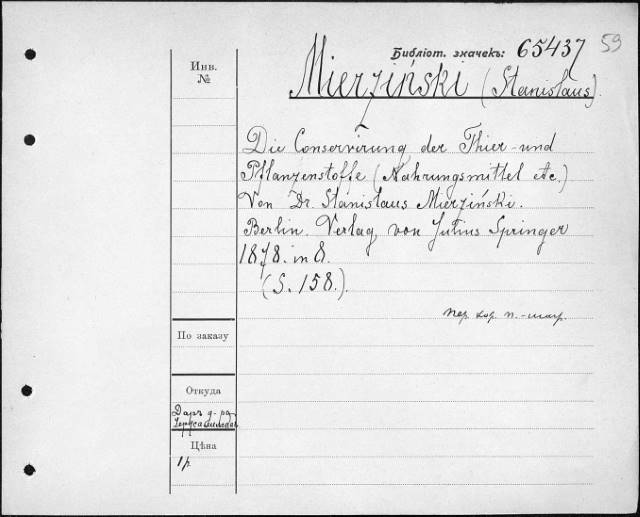 Библіот. значекъ: 65437 59
Инв.
№
Mierziński (Stanislaus).
Die Conservirung der Thier- und
Pflanzenstoffe (Nahrungsmittel etc.)
Von Dr. Stanislaus Mierziński.
Berlin. Verlag von Julius Springer
1878. in 8.
(S. 158.).
По заказу
Откуда
Даръ д-ра
Цѣна
1 р